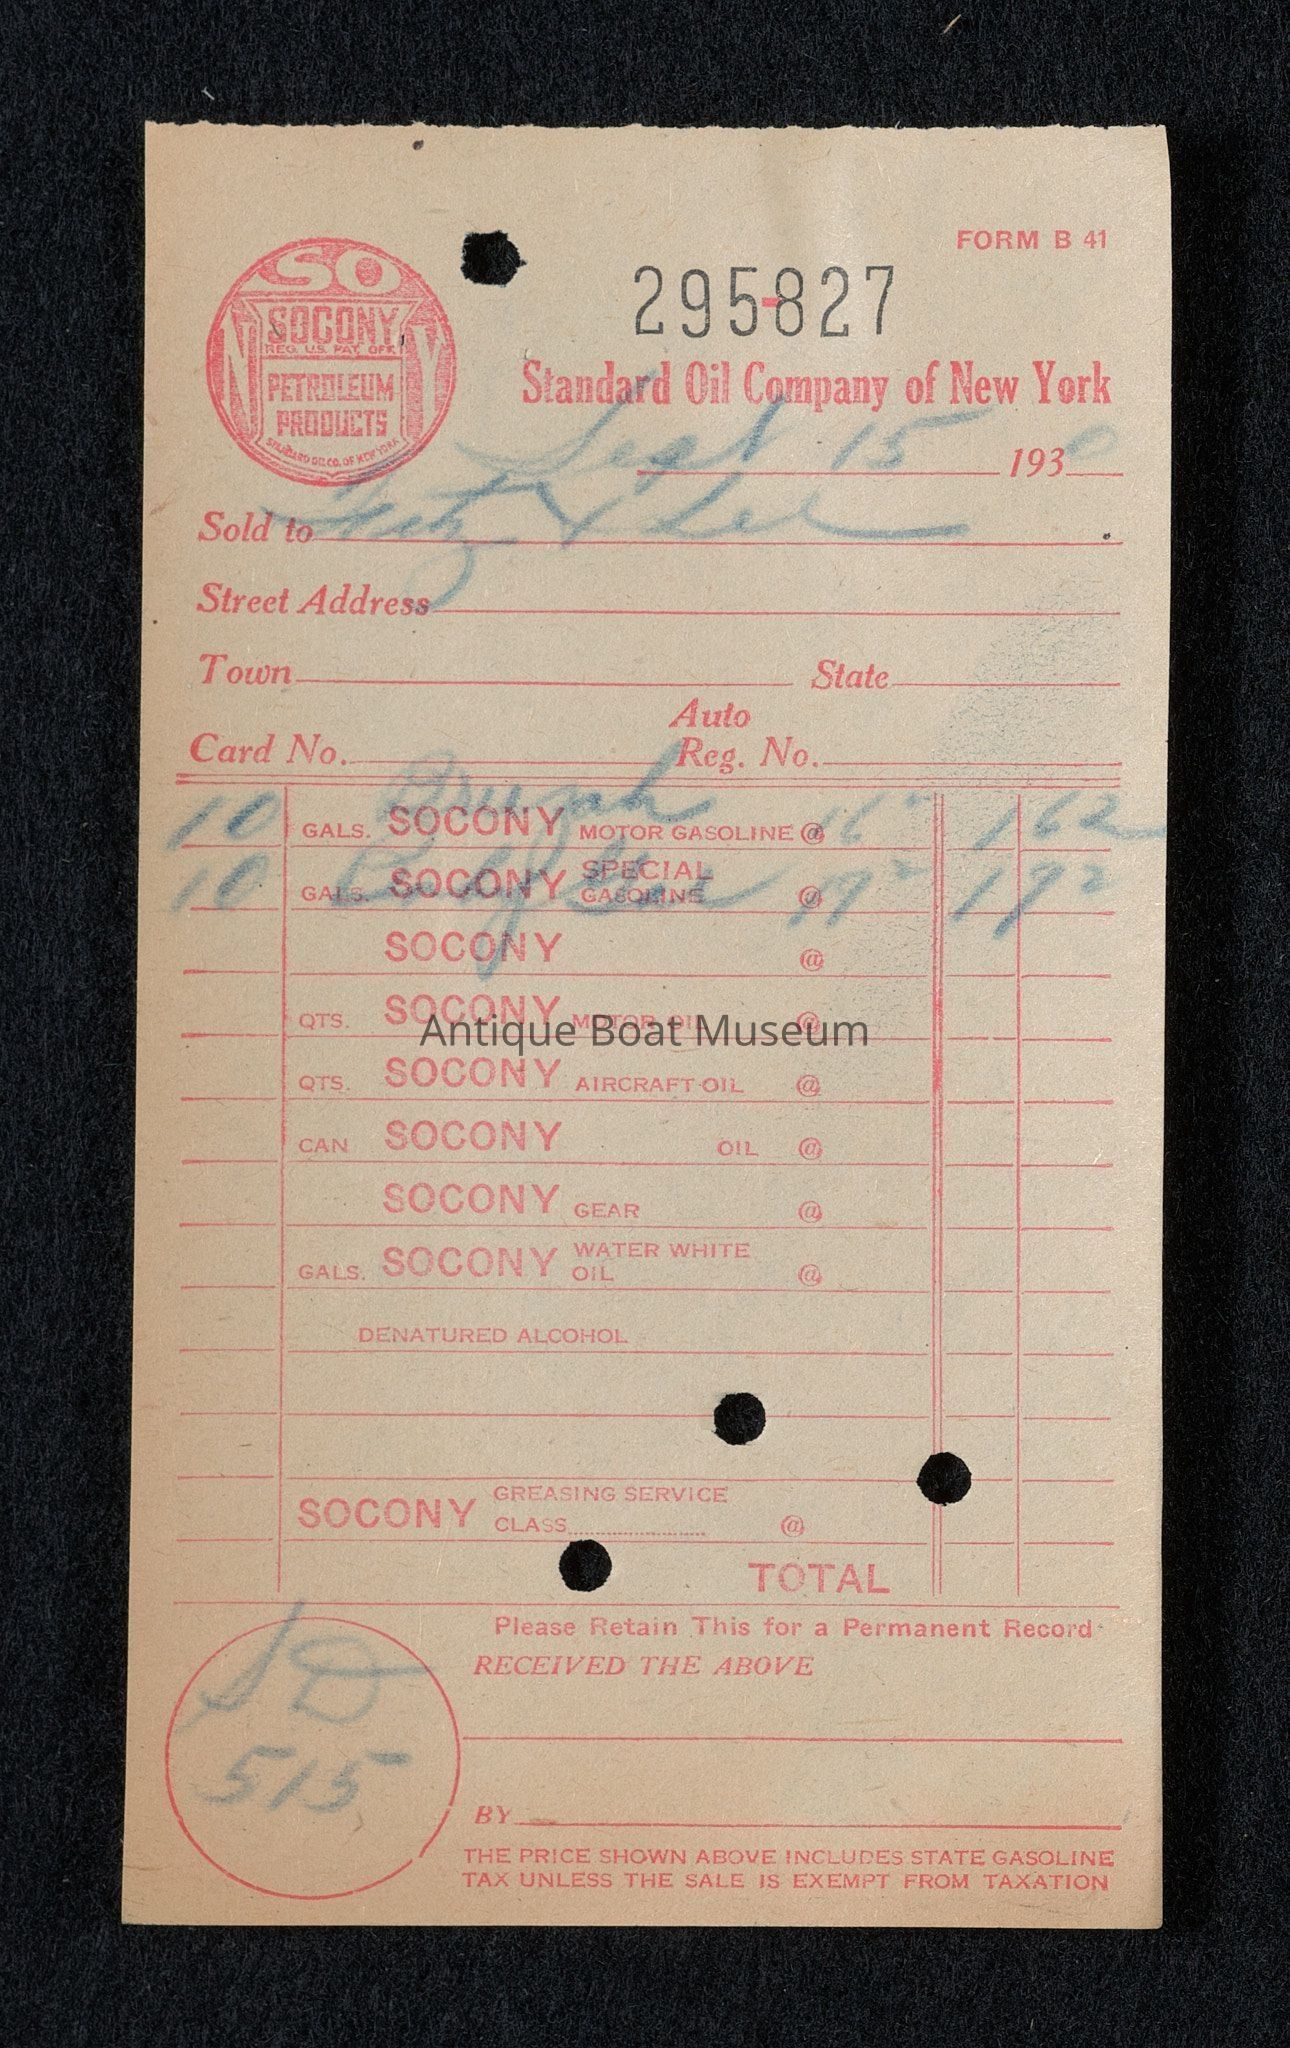 FORM B 41
295-827
SO
NY
SOCONY
REG. U.S. PAT. OFF.
PETROLEUM
PRODUCTS
STANDARD OIL CO. OF NEW YORK
Standard Oil Company of New York
Sept 15 1930
Sold to
Street Address
Town State
Auto
Card No. Reg. No.
10 GALS. SOCONY MOTOR GASOLINE @ 162
10 GALS. SOCONY SPECIAL GASOLINE @ 192
SOCONY @
QTS. SOCONY MOTOR OIL @
Antique Boat Museum
QTS. SOCONY AIRCRAFT OIL @
CAN SOCONY OIL @
SOCONY GEAR @
GALS. SOCONY WATER WHITE OIL @
DENATURED ALCOHOL
SOCONY GREASING SERVICE
CLASS @
TOTAL
Please Retain This for a Permanent Record
RECEIVED THE ABOVE
SD
515
BY
THE PRICE SHOWN ABOVE INCLUDES STATE GASOLINE
TAX UNLESS THE SALE IS EXEMPT FROM TAXATION